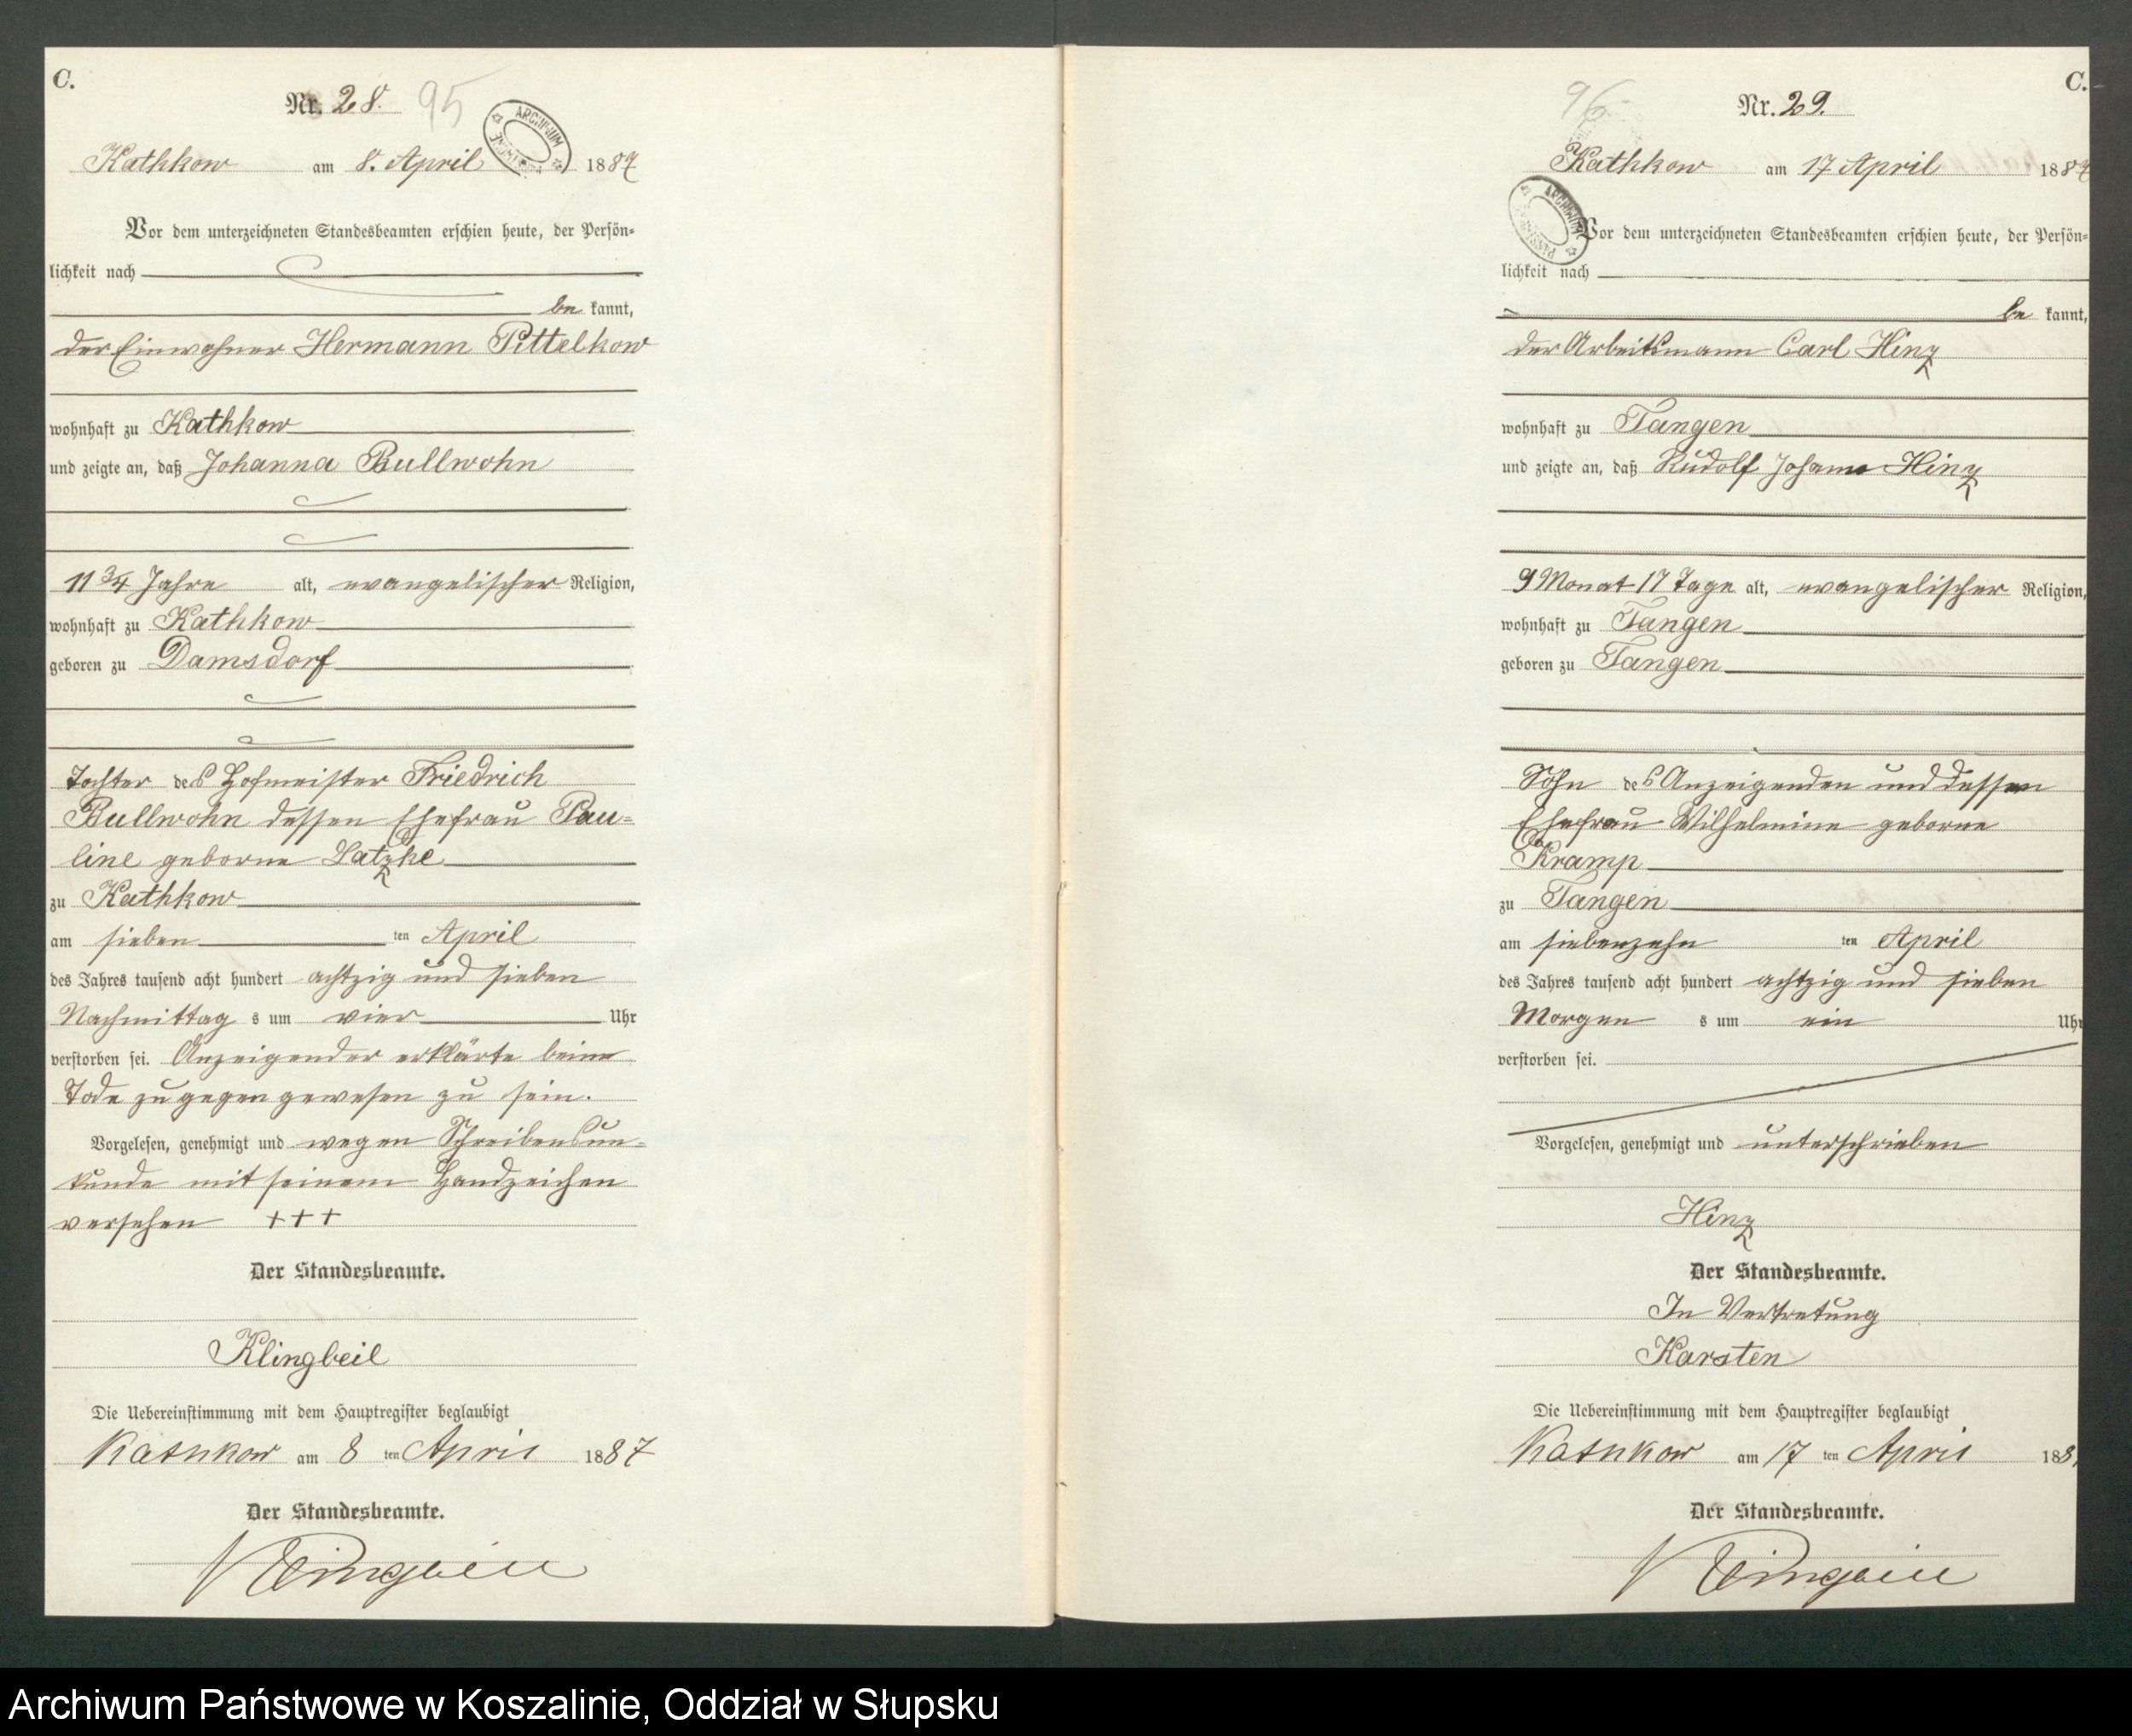 C.
Nr. 28. 95
ARCHIWUM
Kathkow am 8. April 1887
Vor dem unterzeichneten Standesbeamten erschien heute, der Persön-
lichkeit nach
be kannt,
der Einwohner Hermann Pittelkow
wohnhaft zu Kathkow
und zeigte an, daß Johanna Bullwohn
11 3/4 Jahre alt, evangelischer Religion,
wohnhaft zu Kathkow
geboren zu Damsdorf
Tochter des Hofmeister Friedrich
Bullwohn dessen Ehefrau Pau-
line geborne Latzke
zu Kathkow
am sieben ten April
des Jahres tausend acht hundert achtzig und sieben
Nachmittag s um vier Uhr
verstorben sei. Anzeigender erklärte beim
Tode zu gegen gewesen zu sein.
Vorgelesen, genehmigt und wegen Schreibensun-
kunde mit seinem Handzeichen
versehen +++
Der Standesbeamte.
Klingbeil
Die Uebereinstimmung mit dem Hauptregister beglaubigt
Kathkow am 8 ten April 1887
Der Standesbeamte.
Klingbeil
C.
96 Nr. 29.
Kathkow am 17 April 1887
ARCHIWUM
Vor dem unterzeichneten Standesbeamten erschien heute, der Persön-
lichkeit nach
be kannt,
der Arbeitsmann Carl Hinz
wohnhaft zu Tangen
und zeigte an, daß Rudolf Johann Hinz
9 Monat 17 Tage alt, evangelischer Religion,
wohnhaft zu Tangen
geboren zu Tangen
Sohn des Anzeigenden und dessen
Ehefrau Wilhelmine geborne
Kramp
zu Tangen
am siebenzehn ten April
des Jahres tausend acht hundert achtzig und sieben
Morgen s um ein Uhr
verstorben sei.
Vorgelesen, genehmigt und unterschrieben
Hinz
Der Standesbeamte.
In Vertretung
Karsten
Die Uebereinstimmung mit dem Hauptregister beglaubigt
Kathkow am 17 ten April 188
Der Standesbeamte.
Klingbeil
Archiwum Państwowe w Koszalinie, Oddział w Słupsku